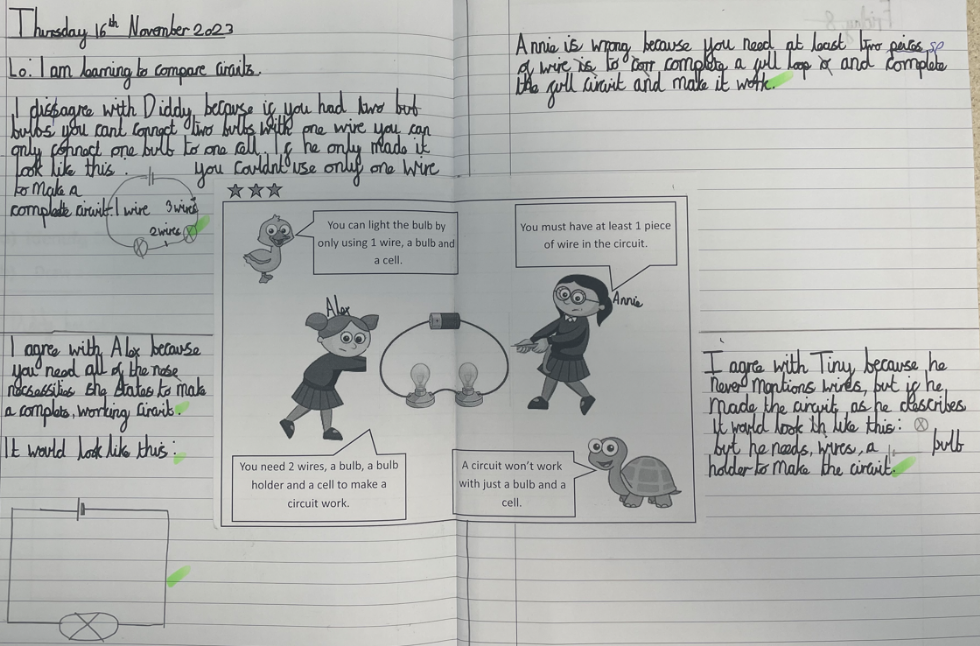 Thursday 16th November 2023
Lo: I am learning to compare circuits.
I dissagree with Diddy, because if you had two but
bulbs you cant connect two bulbs with one wire you can
only connect one bulb to one cell. If he only made it
look like this. you couldnt use only one wire
to make a
complete circuit. 1 wire 3 wires
2 wires
Annie is wrong because you need at least two peices sp
of wire is to corr complete a full loop and complete
the full circuit and make it work.
★★★
You can light the bulb by
only using 1 wire, a bulb and
a cell.
You must have at least 1 piece
of wire in the circuit.
Alex
Annie
You need 2 wires, a bulb, a bulb
holder and a cell to make a
circuit work.
A circuit won't work
with just a bulb and a
cell.
I agree with Alex because
you need all of the nese
necsessities she states to make
a complete, working circuit.
It would look like this:
I agree with Tiny because he
never mentions wires, but if he
made the circuit as he describes
it would look th like this:
but he needs, wires, a bulb
holder to make the circuit.